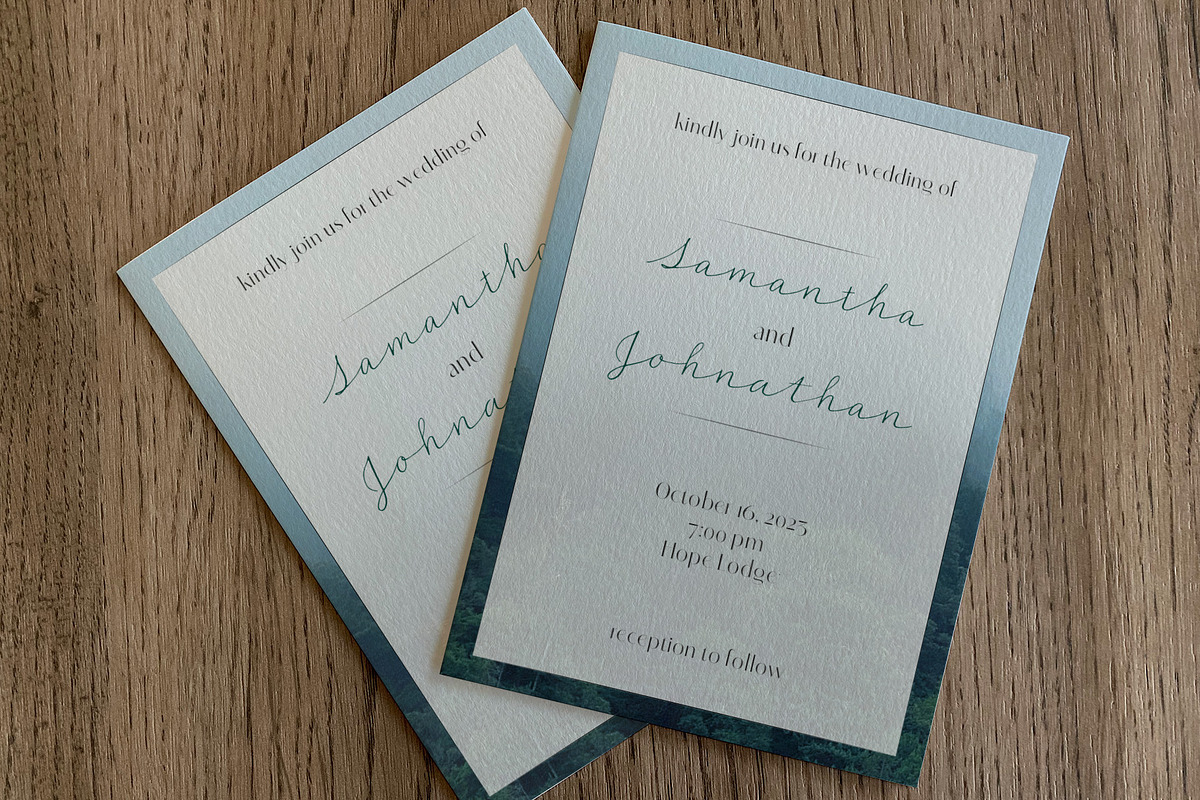 kindly join us for the wedding of
Samantha
and
Johna
kindly join us for the wedding of
Samantha
and
Johnathan
October 16, 2025
7:00 pm
Hope Lodge
reception to follow